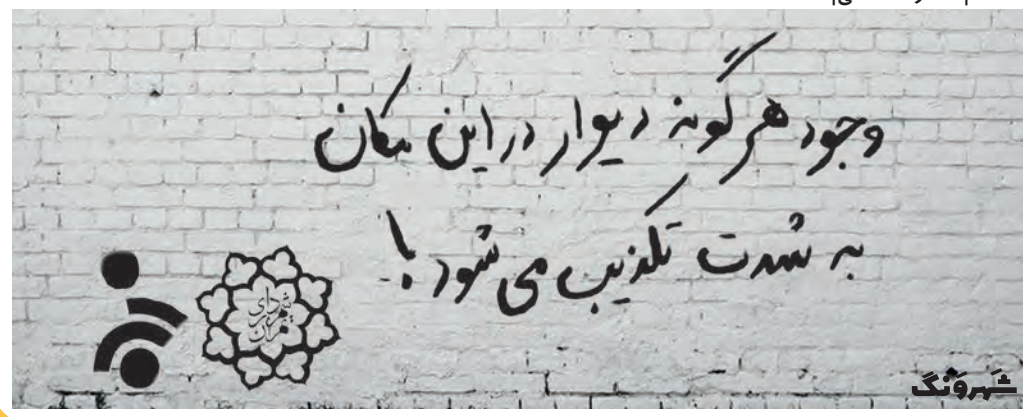 وجود هر گونه دیوار در این مکان
به شدت تکذیب می شود!
شهرداری تهران
شهرونگ